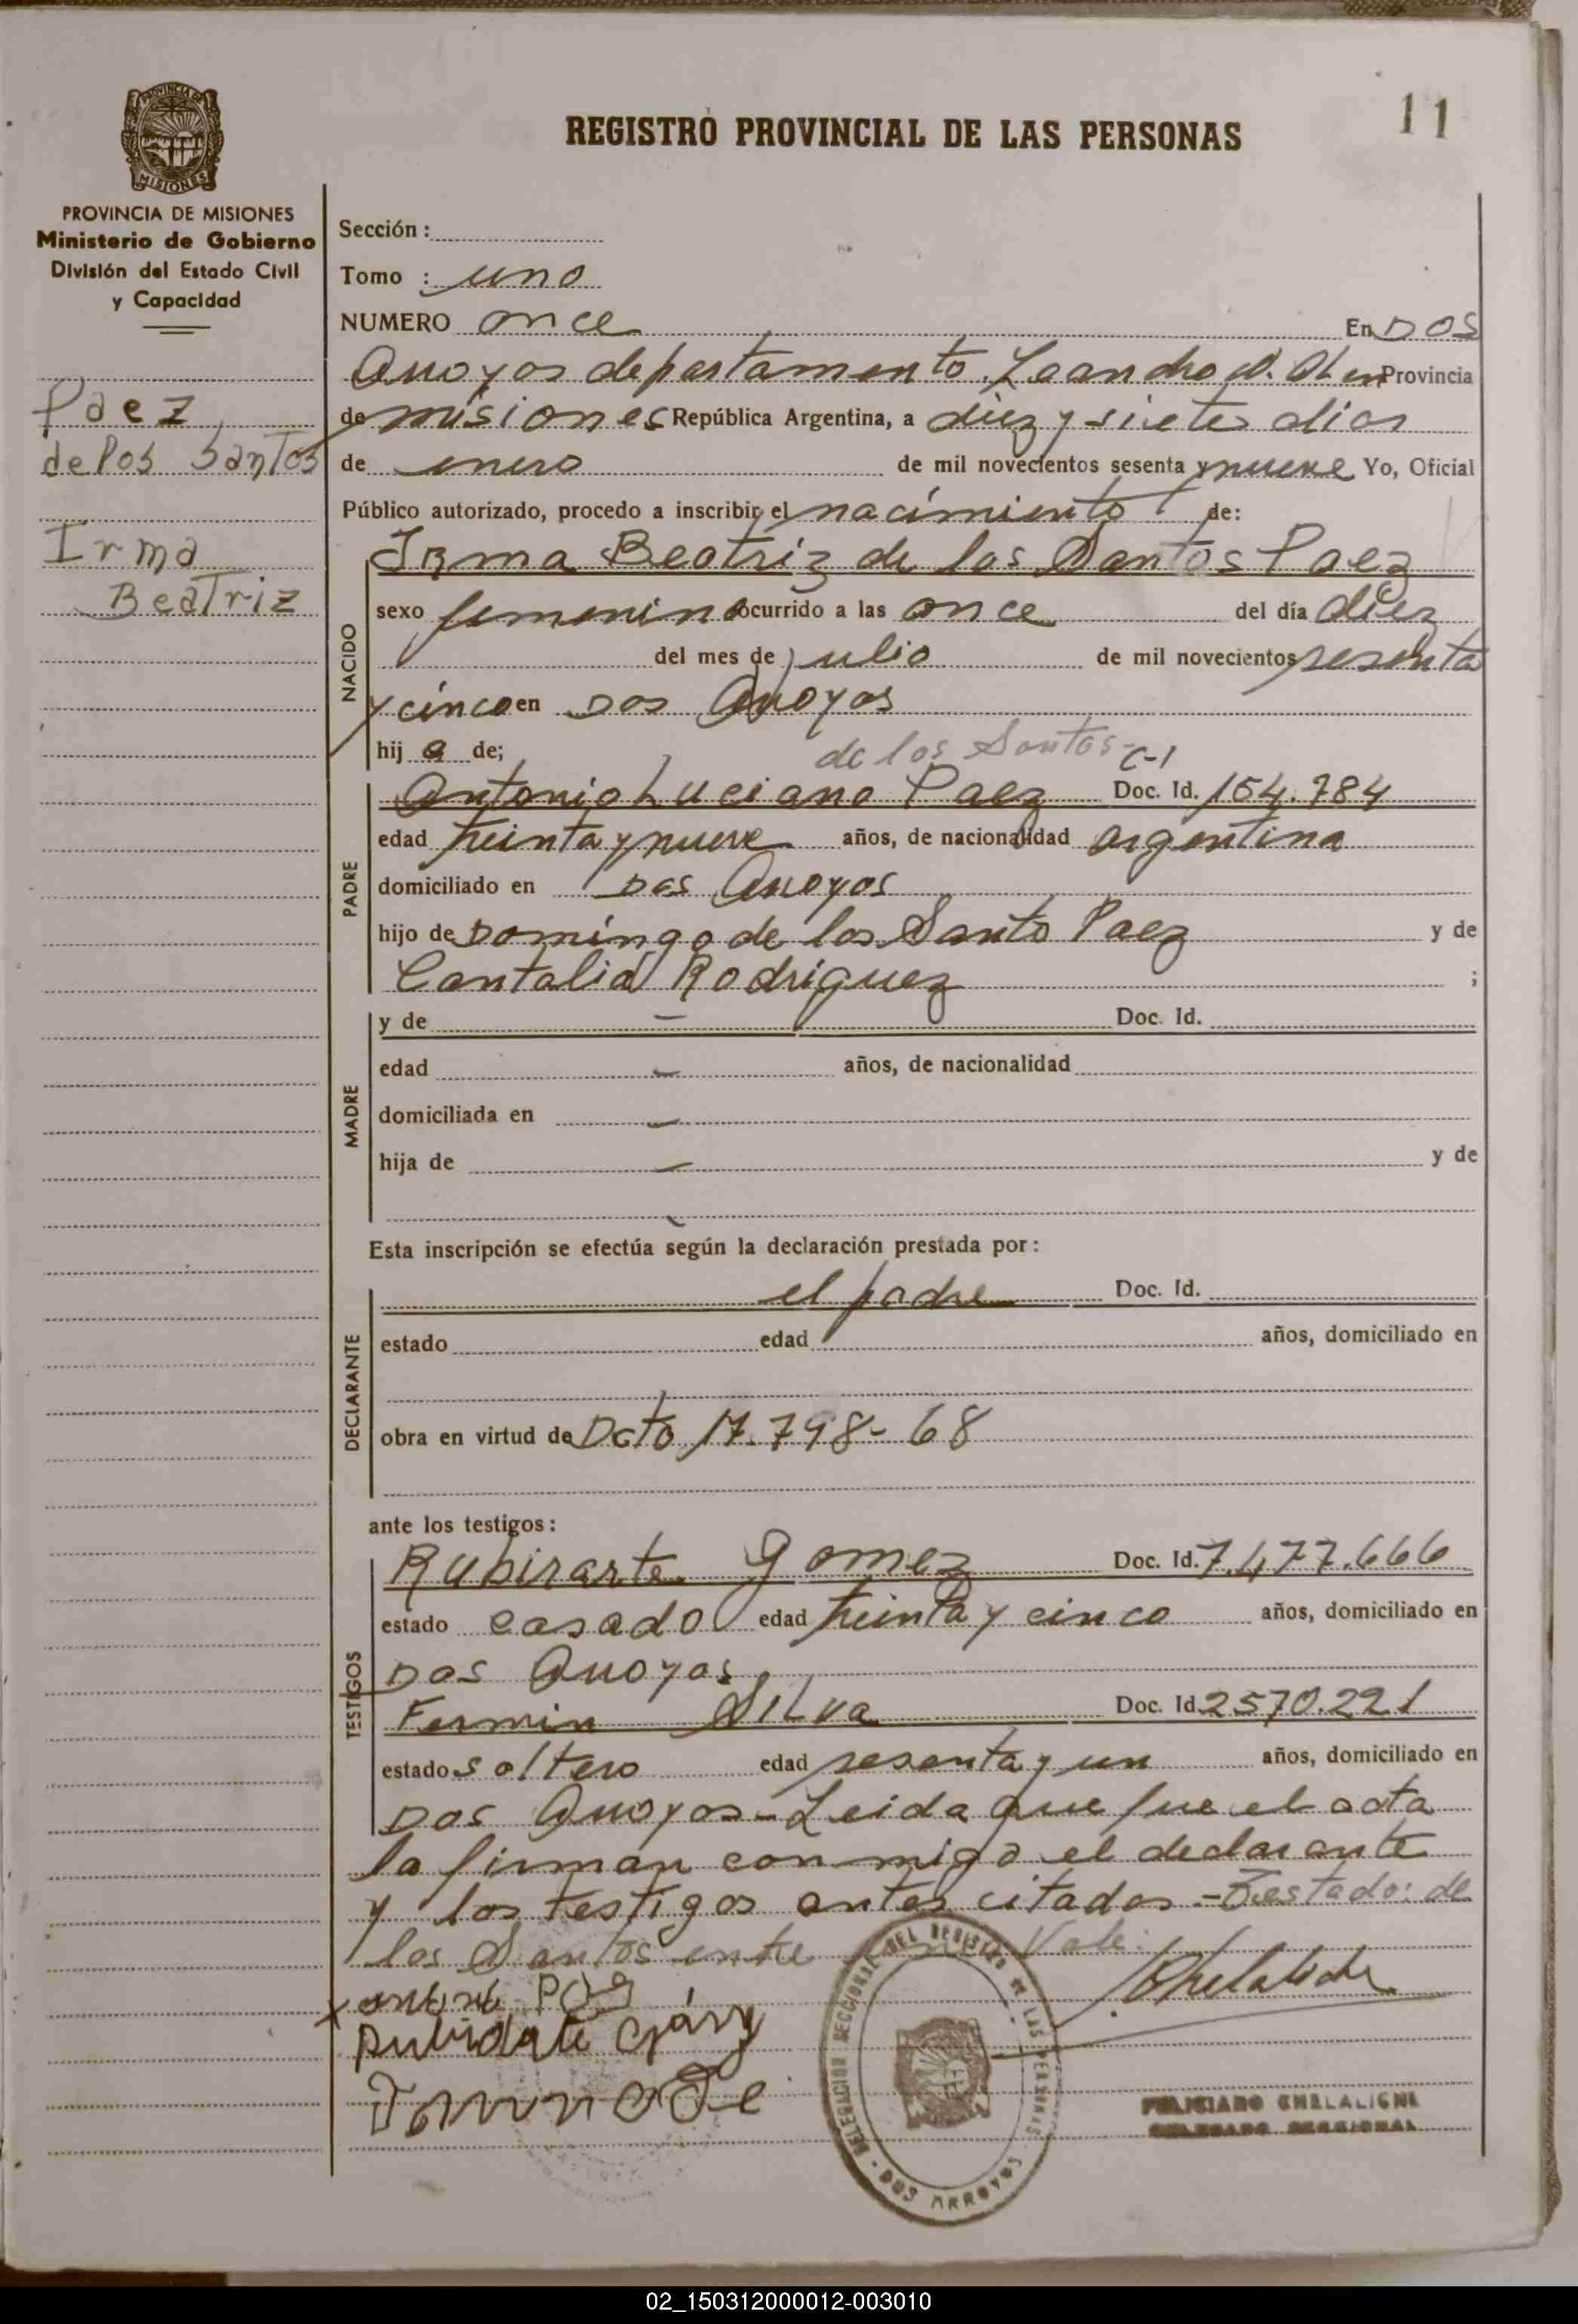 11
REGISTRO PROVINCIAL DE LAS PERSONAS
PROVINCIA DE
MISIONES
PROVINCIA DE MISIONES
Ministerio de Gobierno
División del Estado Civil
y Capacidad
Paez
de los Santos
Irma
Beatriz
Sección :
Tomo : uno
NUMERO once En Dos
Arroyos departamento Leandro N. Alem Provincia
de misiones República Argentina, a diez y siete dias
de enero de mil novecientos sesenta y nueve Yo, Oficial
Público autorizado, procedo a inscribir el nacimiento de:
NACIDO
Irma Beatriz de los Santos Paez
sexo femenino ocurrido a las once del día diez
del mes de julio de mil novecientos sesenta
y cinco en Dos Arroyos
hij a de;
de los Santos
PADRE
Antonio Luciano Paez Doc. Id. C-1 154.784
edad treinta y nueve años, de nacionalidad argentina
domiciliado en Dos Arroyos
hijo de Domingo de los Santo Paez y de
Cantalia Rodriguez ;
MADRE
y de - Doc. Id.
edad - años, de nacionalidad
domiciliada en -
hija de - y de
Esta inscripción se efectúa según la declaración prestada por :
DECLARANTE
el padre Doc. Id.
estado edad años, domiciliado en
obra en virtud de Dcto 17.798-68
ante los testigos :
TESTIGOS
Rubirarte Gomez Doc. Id. 7.477.666
estado casado edad treinta y cinco años, domiciliado en
Dos Arroyos
Fermin Silva Doc. Id. 2570.221
estado soltero edad sesenta y un años, domiciliado en
Dos Arroyos - Leida que fue el acta
la firman conmigo el declarante
y los testigos antes citados - Testado: de
los Santos entre Vale
DELEGACION SECCIONAL DEL REGISTRO DE LAS PERSONAS
- DOS ARROYOS
FELICIANO CHELALICHE
DELEGADO SECCIONAL
02_150312000012-003010